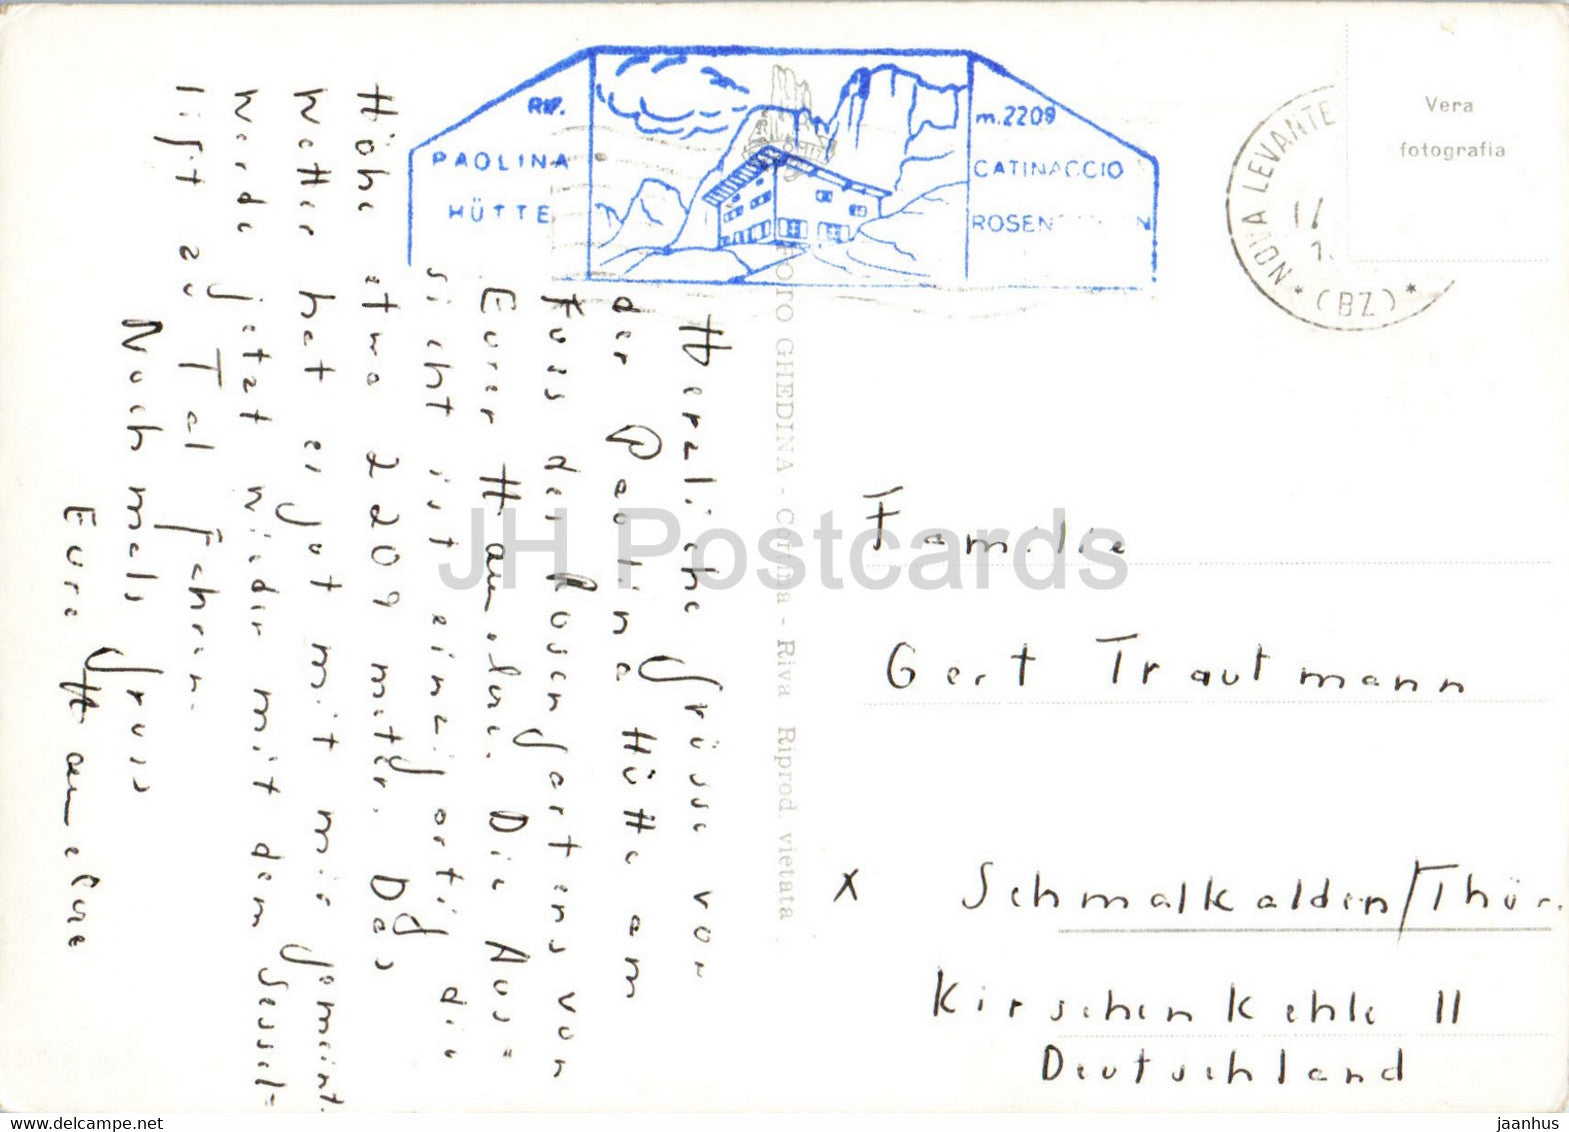 RIF.
PAOLINA
HÜTTE
m. 2209
CATINACCIO
ROSEN N
NOVA LEVANTE
* (BZ) *
Vera
fotografia
FOTO GHEDINA - Cortina - Riva Riprod. vietata
Herzliche Grüsse von
der Paolina Hütte am
Fuss des Rosengartens von
Eurer Hannelore. Die Aus=
sicht ist einzigartig die
Höhe etwa 2209 meter. Das
Wetter hat es gut mit mir gemeint.
Werde jetzt wieder mit dem Sessel-
lift zu Tal fahren.
Nochmals Gruss
Eure Hannelore
Familie
Gert Trautmann
x Schmalkalden/Thür.
Kirschenkehle 11
Deutschland
JH Postcards
jaanhus